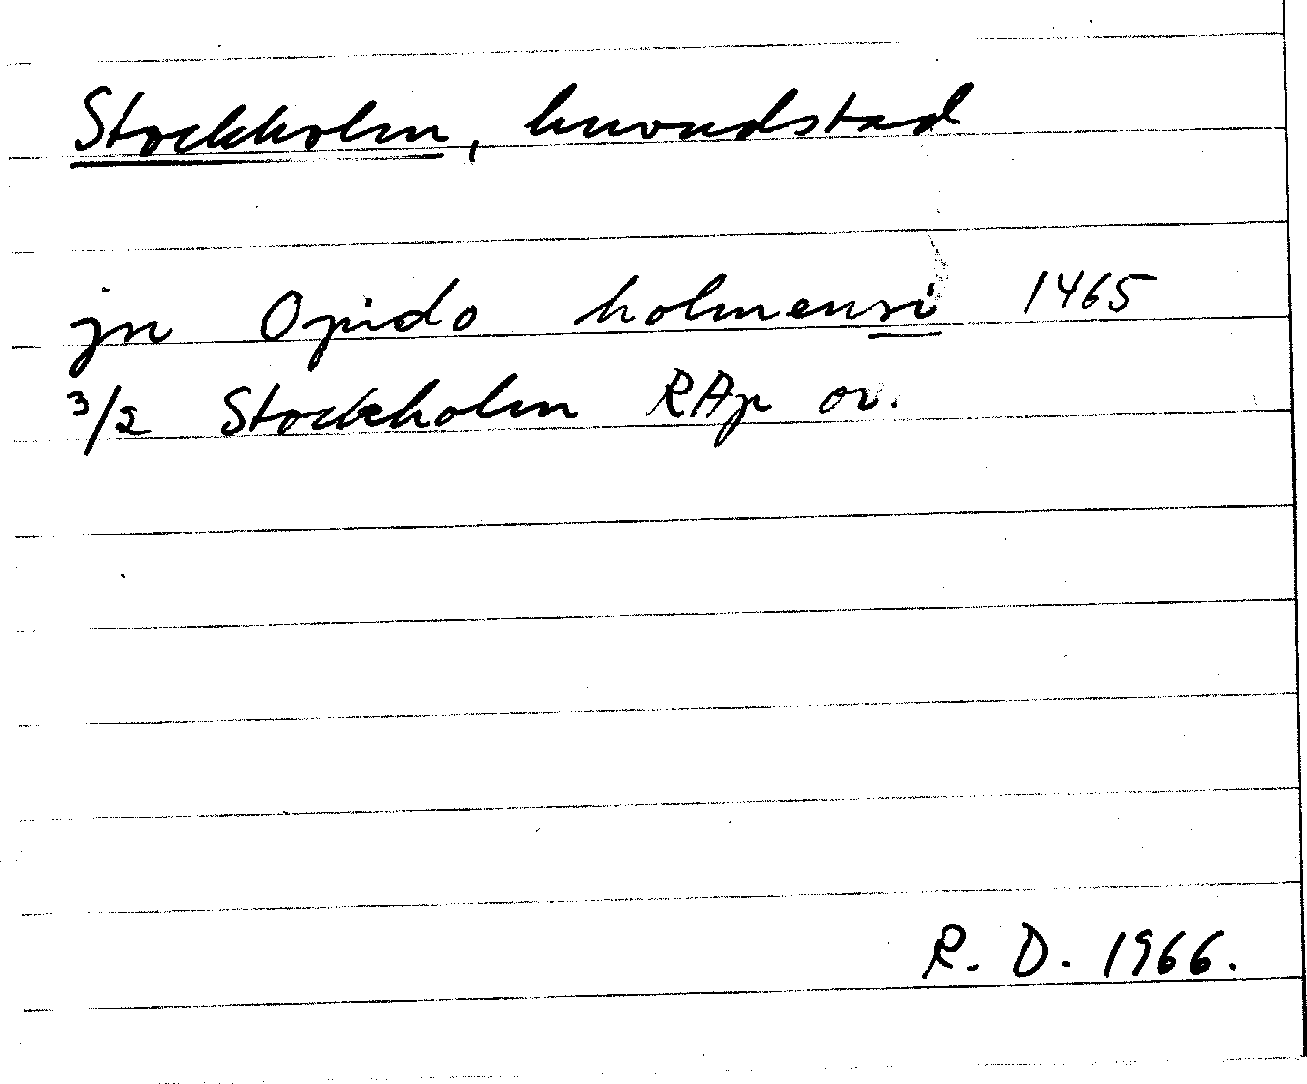 Stockholm, huvudstad
jn Opido holmensi 1465
3/2 Stockholm RAp or.
R. D. 1966.